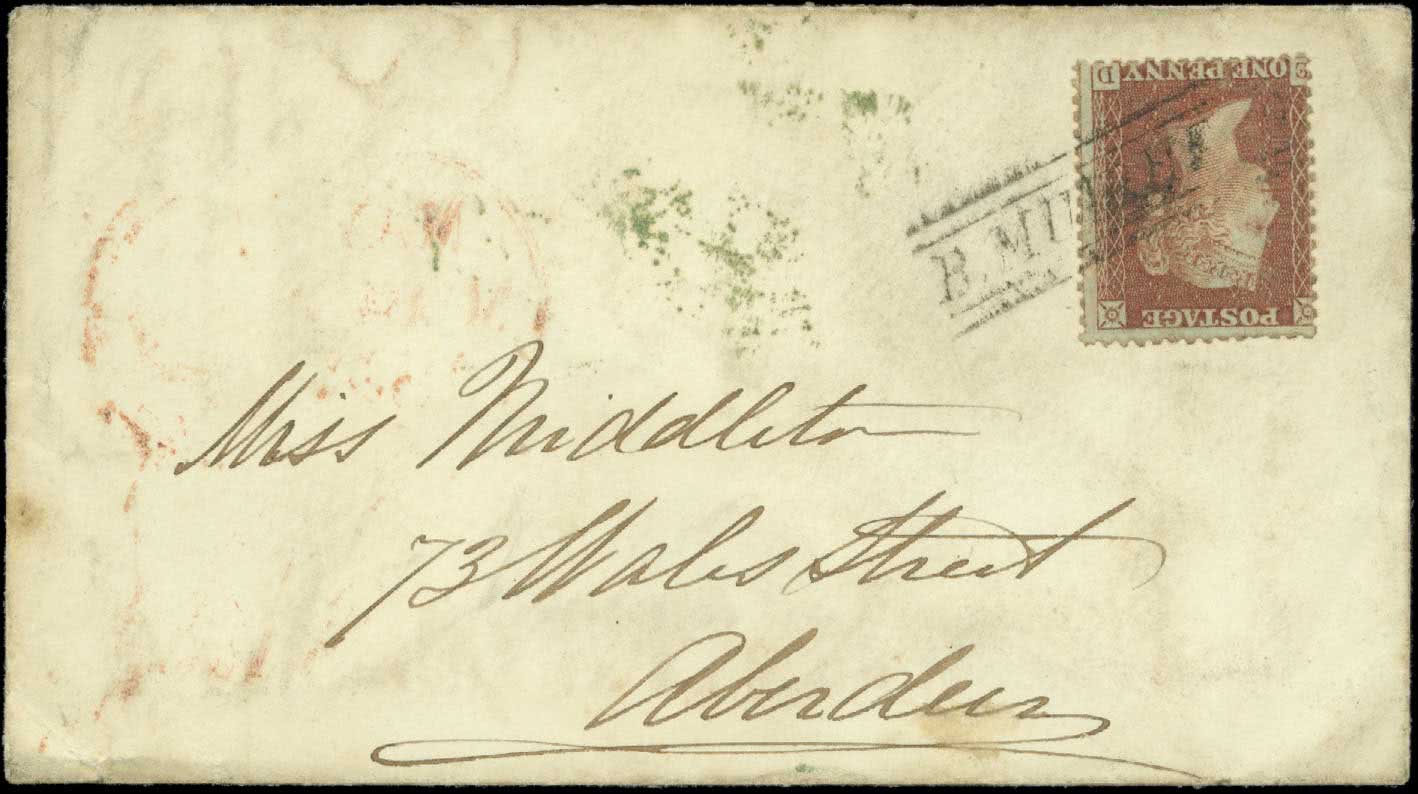 ONE PENNY
D
POSTAGE
Miss Middleton
73 Wales Street
Aberdeen